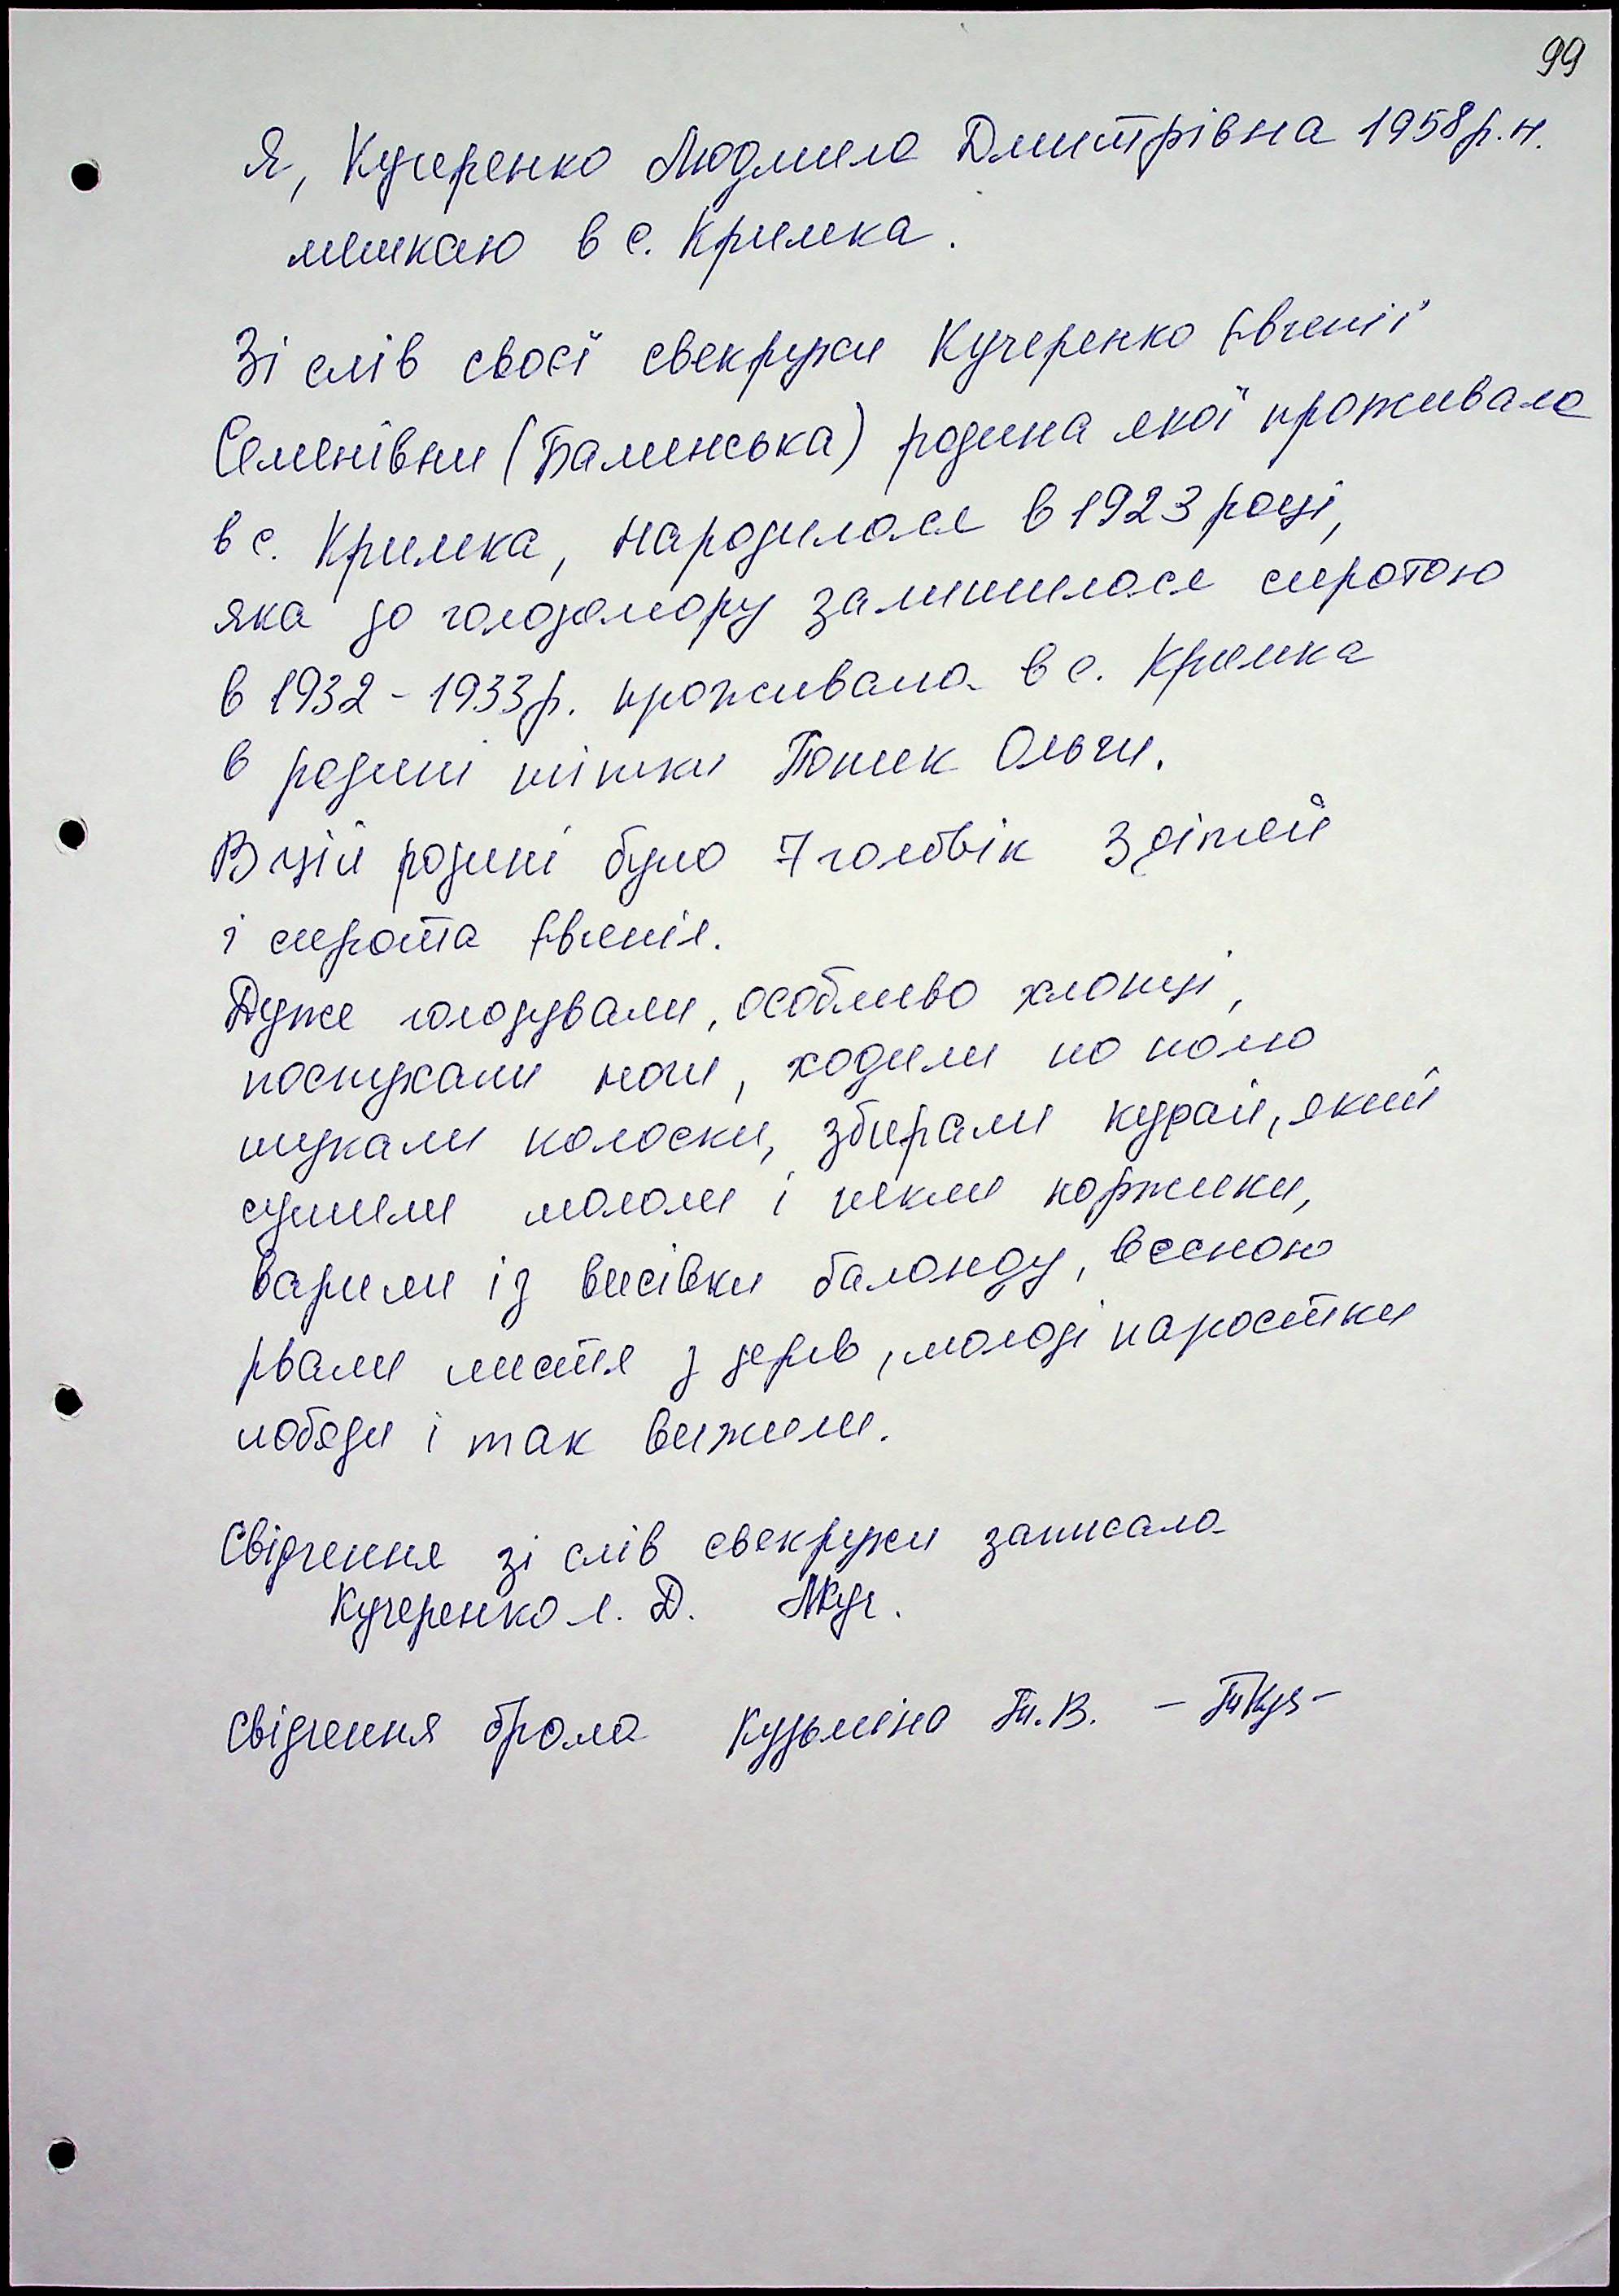 99
Я, Кучеренко Людмила Дмитрівна 1958 р.н.
мешкаю в с. Кримка.
Зі слів своєї свекрухи Кучеренко Євгенії
Семенівни (Баменська) родина якої проживала
в с. Кримка, народилася в 1923 році,
яка до голодомору залишилася сиротою
в 1932 - 1933 р. проживала в с. Кримка
в родині тітки Попик Ольги.
В цій родині було 7 чоловік 3 дітей
і сирота Євгенія.
Дуже голодували, особливо хлопці,
поспухали ноги, ходили по полю
шукали колоски, збирали курай, який
сушили мололи і пекли коржики,
варили із висівки баланду, весною
рвали листя з дерев, молоді паростки
лободи і так вижили.
Свідчення зі слів свекрухи записала
Кучеренко Л. Д. ЛКуч.
Свідчення брала Кузьміна Т.В. -